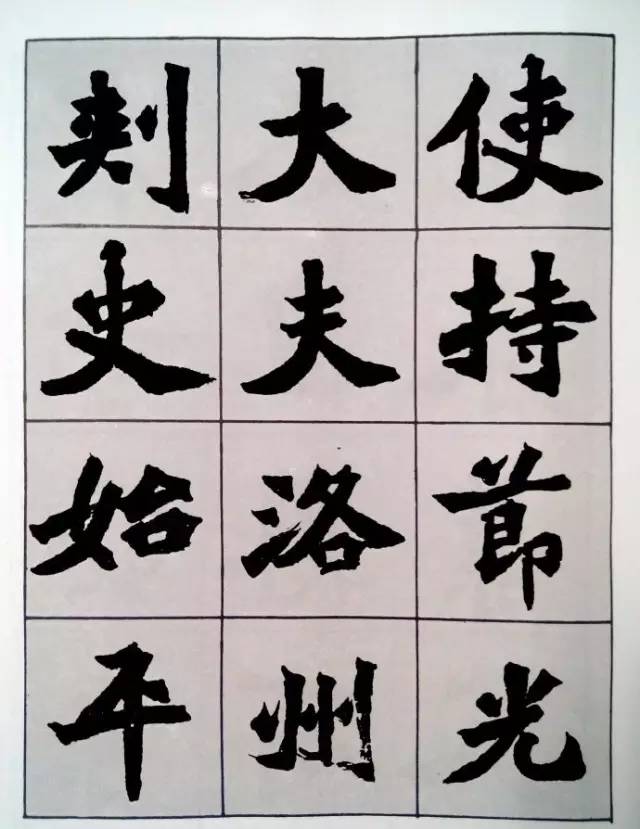 使持節光
大夫洛州
刾史始平